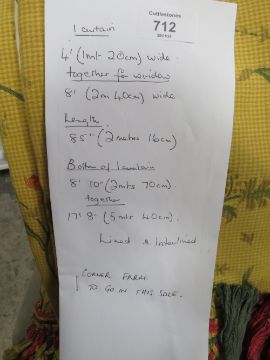 Cuttlestones
712
1 curtain
4' (1mt 20cm) wide
together for window
8' (2m 40cm) wide
Length
85" (2 metres 16cm)
Bottom of 1 curtain
8' 10" (2mts 70cm).
together
17' 8" (5mts 40cm).
Lined & Interlined
CORNER
TO GO IN THIS SIDE.